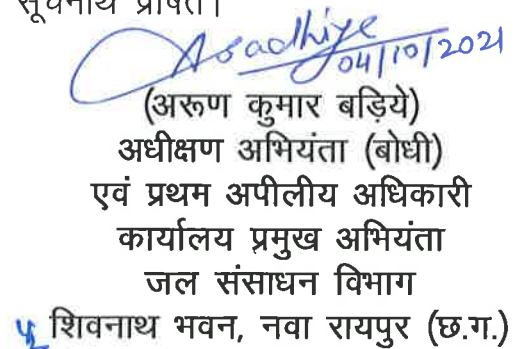 सूचनार्थ प्रेषित।
Asadhiye
04/10/2021
(अरूण कुमार बड़िये)
अधीक्षण अभियंता (बोधी)
एवं प्रथम अपीलीय अधिकारी
कार्यालय प्रमुख अभियंता
जल संसाधन विभाग
शिवनाथ भवन, नवा रायपुर (छ.ग.)